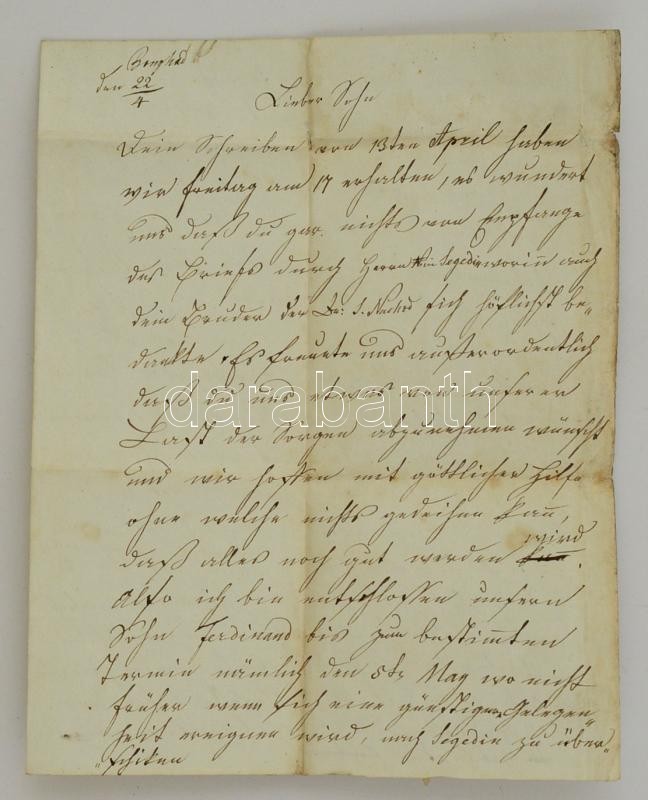 Bonyhad
den 22/4
Lieber Sohn
Dein Schreiben von 13ten April haben
wir freitag am 17 erhalten, es wundert
uns daß du gar nichts von Empfange
des Briefs durch Herrn Segedin worinn auch
dein Bruder der Dr: S. sich höflichst be„
dankte. Es freuete uns außerordentlich
daß du uns etwas von unserer
darabanth
Last der Sorgen abzunehmen wünscht
und wir hoffen mit göttlicher Hilfe
ohne welche nichts gedeihen kann,
daß alles noch gut werden wird.
Also ich bin entschlossen unsern
Sohn Ferdinand bis zum bestimten
Termin nämlich den 5te May wo nicht
früher wenn sich eine günstige Gelegen„
heit ereignen wird, nach Segedin zu über„
„schiken